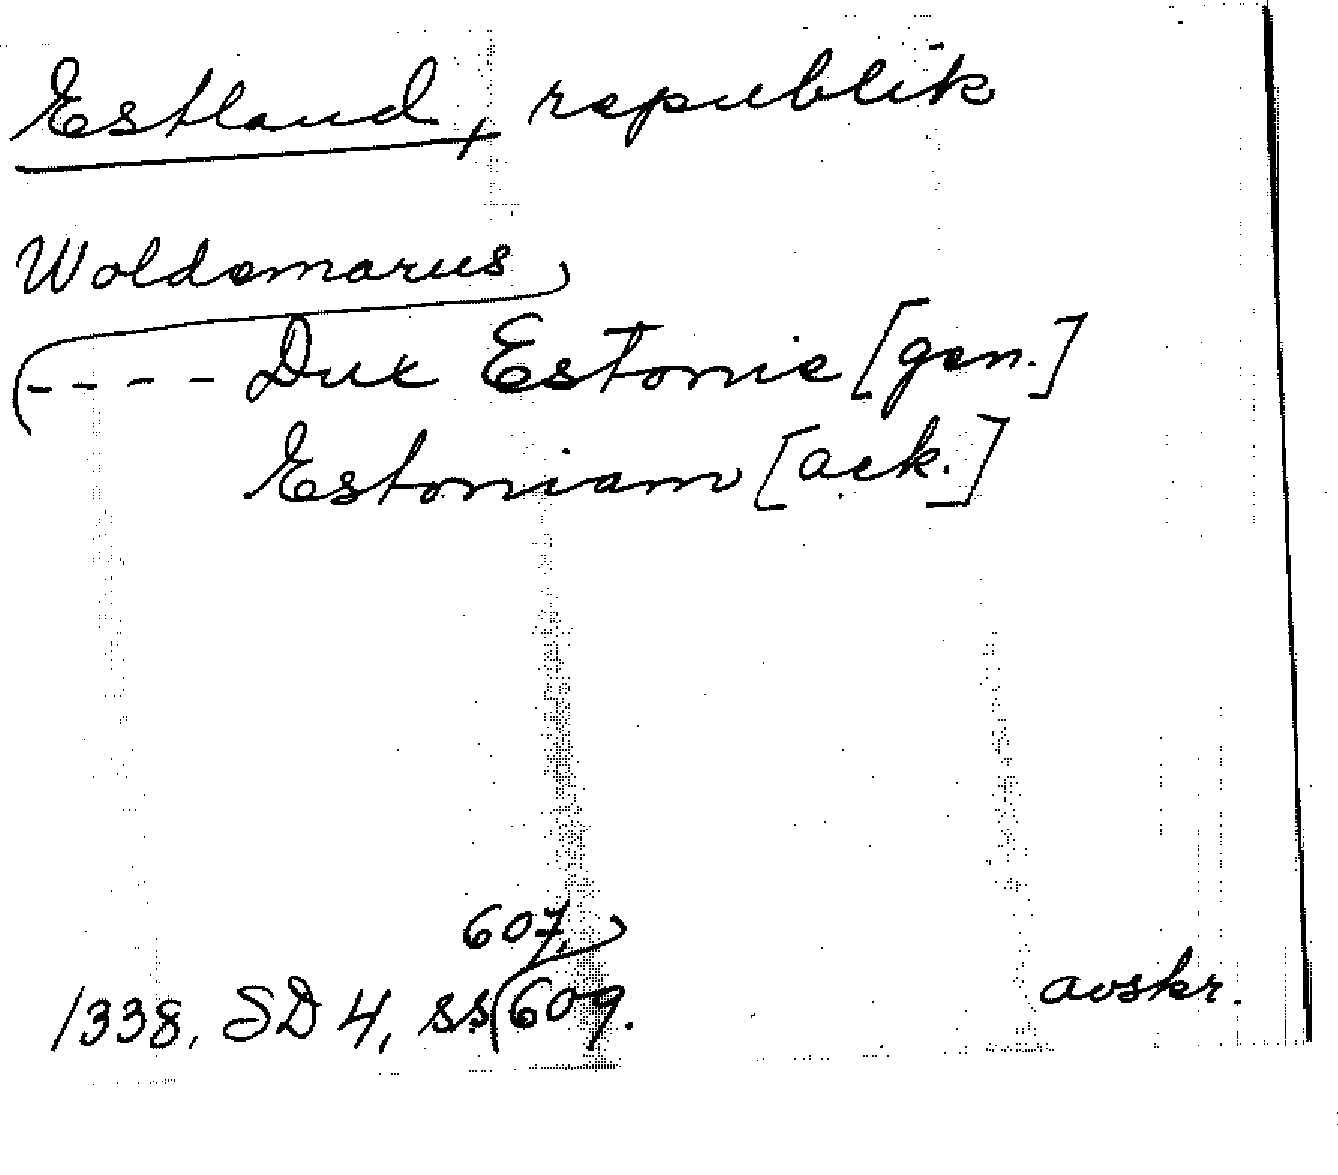 Estland, republik
Woldemarus
---- Dux Estonie [gen.]
Estoniam [ack.]
607,
1338, SD 4, ss 609.
avskr.